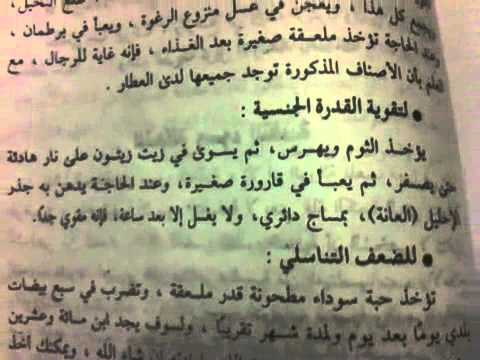 كل هذا ، ويعجن في عسل منزوع الرغوة ، ويعبأ في برطمان ،
وعند الحاجة تؤخذ ملعقة صغيرة بعد الغذاء ، فإنه غاية للرجال ، مع
العلم بأن الأصناف المذكورة توجد جميعها لدى العطار .
● لتقوية القدرة الجنسية :
يؤخذ الثوم ويهرس، ثم يسوى في زيت زيتون على نار هادئة
حتى يصفر، ثم يعبأ في قارورة صغيرة، وعند الحاجة يدهن به جذر
الإحليل (العانة)، بمساج دائري، ولا يغسل إلا بعد ساعة، فإنه مقوي جدًا.
● للضعف التناسلي :
تؤخذ حبة سوداء مطحونة قدر ملعقة ، وتضرب في سبع بيضات
بلدي يومًا بعد يوم ولمدة شهر تقريبًا ، ولسوف يجد ابن مائة وعشرين
شاء الله ، ويمكنك